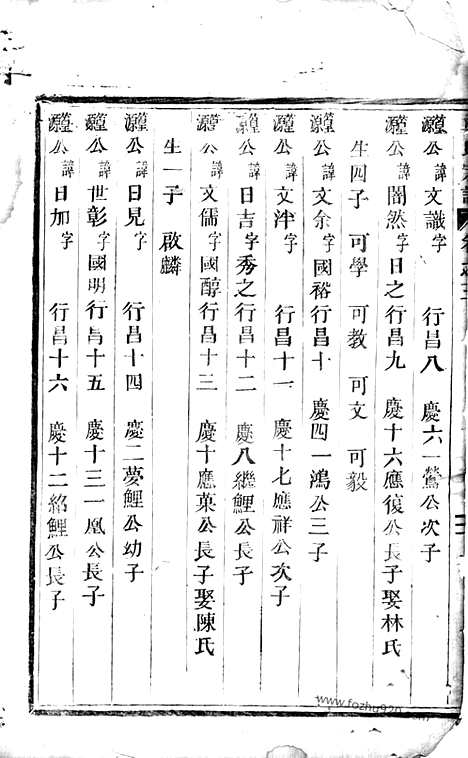 公諱文識字 行昌八 慶六一鶯公次子
公諱闇然字日之行昌九 慶十六應復公長子娶林氏
生四子 可學 可教 可文 可毅
公諱文余字國裕行昌十 慶四一鴻公三子
公諱文泮字 行昌十一 慶十七應祥公次子
公諱日吉字秀之行昌十二 慶八繼鯉公長子
公諱文儒字國醇行昌十三 慶十應菓公長子娶陳氏
生一子 啟麟
公諱日見字 行昌十四 慶二夢鯉公幼子
公諱世彰字國明行昌十五 慶十三一凰公長子
公諱日加字 行昌十六 慶十二紹鯉公長子
www.fozhu920.com